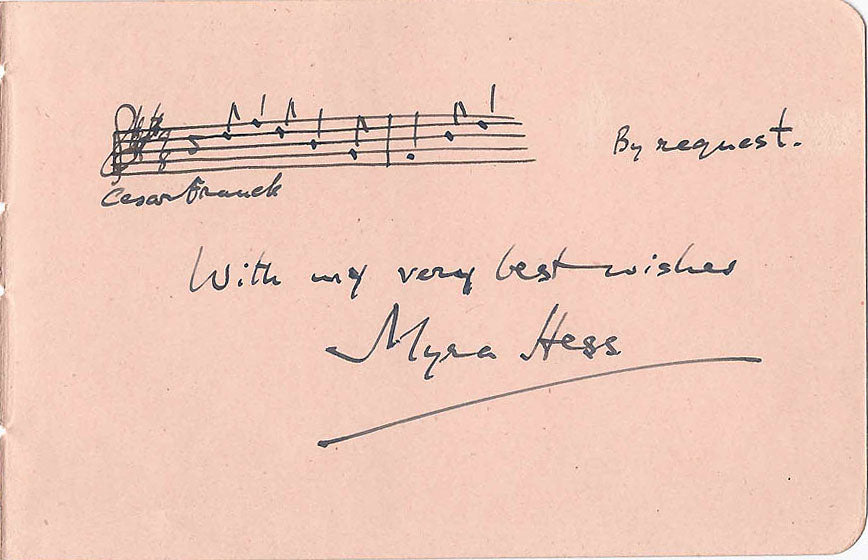 By request.
Cesar Franck
With my very best wishes
Myra Hess